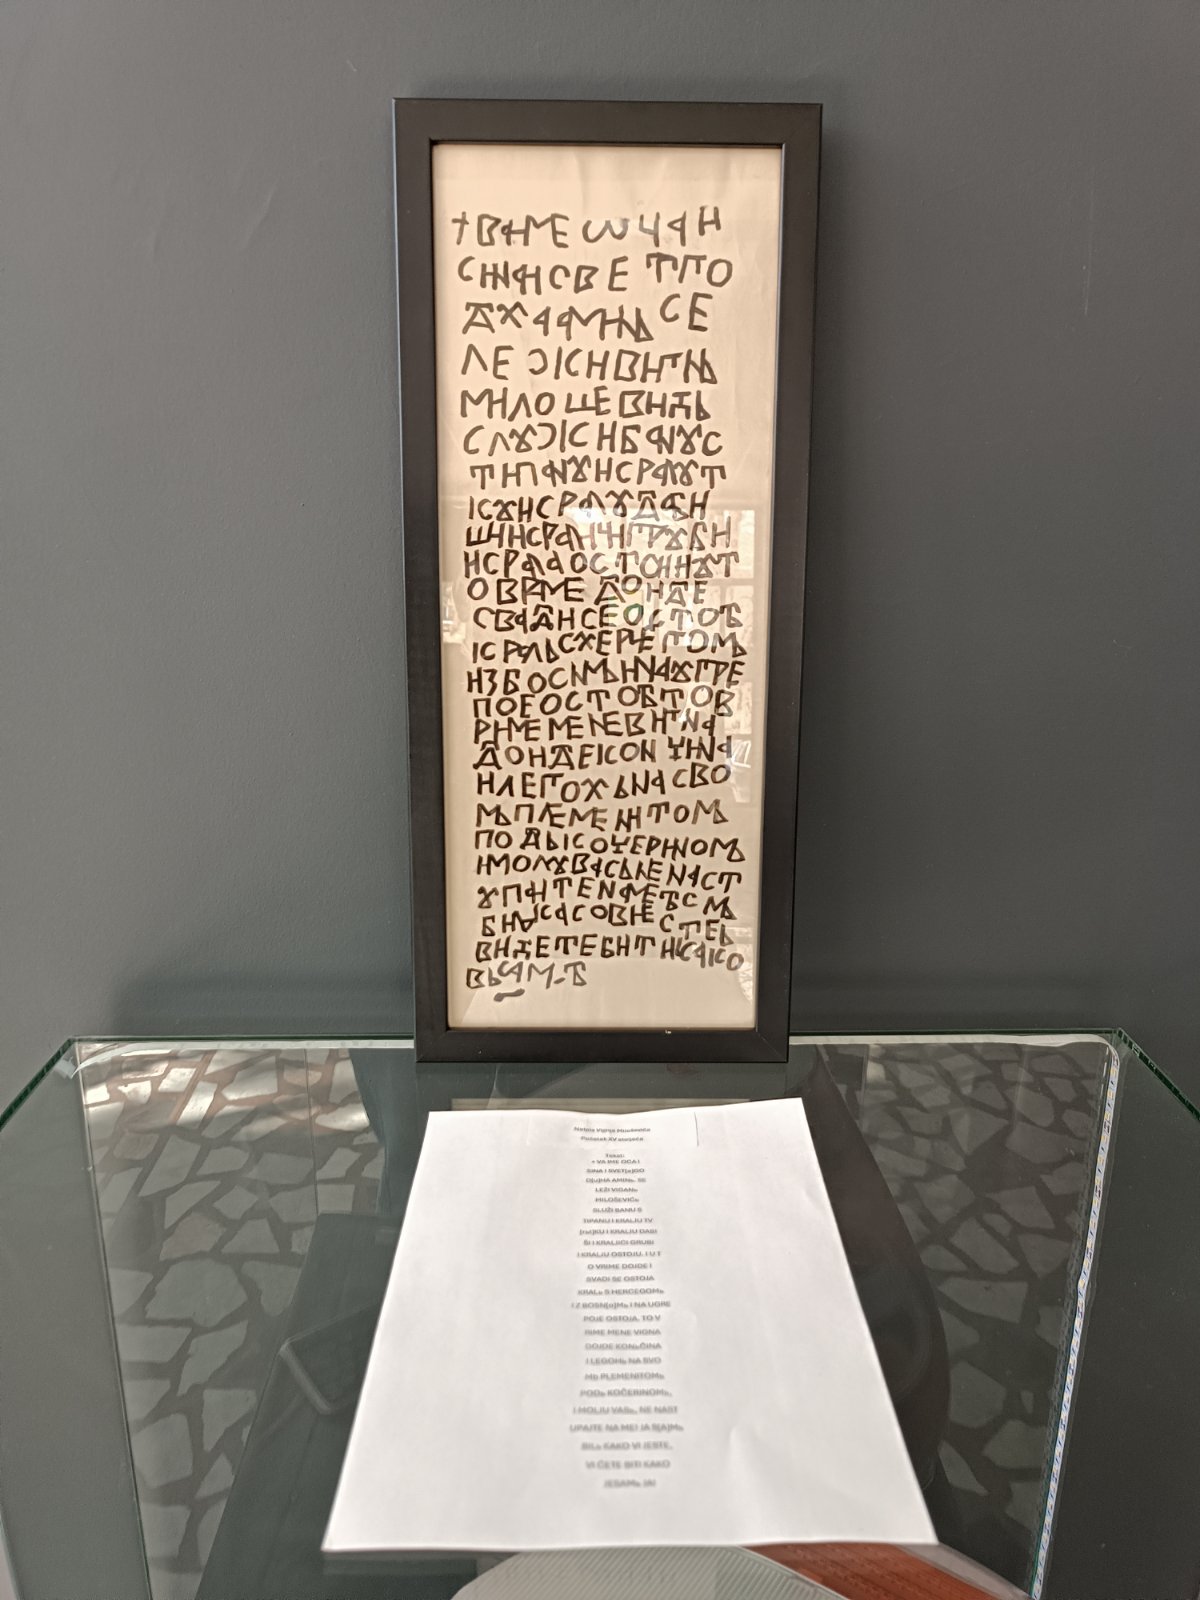 + ВАИМЕ ѠЧАИ
СИНАИСВЕТПО
ДХААМИНЬ СЕ
ЛЕЖИВИГНЬ
МИЛОШЕВИЋЬ
СЛУЖИБАНУС
ТИПАНУИКРАЛУТ
КУИКРАЛУДАБИ
ШИИКРАЛИЦИГРУБИ
ИКРАЛУОСТОИИУТ
ОВРИМЕ ДОИДЕ
СВАДИСЕОСТОЈ
КРАЛЬСХЕРЦЕГОМЬ
ИЗБОСНМЬИНАУГРЕ
ПОЕОСТОЈТОВ
РИМЕМЕНЕВИГНА
ДОИДЕКОНЧИНА
ИЛЕГОХЬНАСВО
МЬПЛЕМЕНИТОМ
ПОДЬКОЧЕРИНОМЬ
ИМОЛУВАСЬНЕНАСТ
УПАИТЕНАМЕЈСМЬ
БИЛЬКАКОВИЕСТЕ
ВИЋЕТЕБИТИКАКО
ЕСАМ-Ј
Natpis Vignja Miloševića
Početak XV stoljeća
Tekst:
+ VA IME OCA I
SINA I SVET[o]GO
D[u]HA AMINь. SE
LEŽI VIGANь
MILOŠEVIĆь
SLUŽI BANU S
TIPANU I KRALJU TV
[rat]KU I KRALJU DABI
ŠI I KRALJICI GRUBI
I KRALJU OSTOJU. I U T
O VRIME DOJDE I
SVADI SE OSTOJA
KRALь S HERCEGOMь
I Z BOSN[o]Mь I NA UGRE
POJE OSTOJA. TO V
RIME MENE VIGNA
DOJDE KONьČINA
I LEGOHь NA SVO
Mь PLEMENITOMь
PODь KOČERINOMь.
I MOLJU VASь, NE NAST
UPAJTE NA ME! JA S[A]Mь
BILь KAKO VI JESTE,
VI ĆETE BITI KAKO
JESAMь JA!